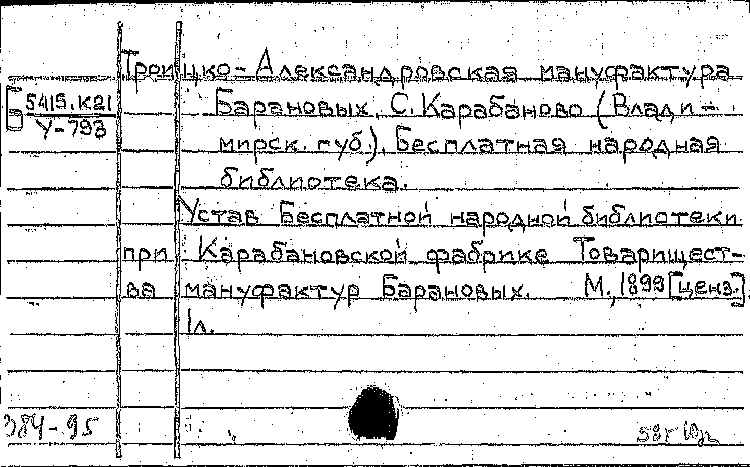 Троицко-Александровская мануфактура
Б 5415.К21
У-793
Барановых, С. Карабаново (Влади-
мирск. губ.). Бесплатная народная
библиотека.
Устав Бесплатной народной библиотеки
при Карабановской фабрике Товарищест-
ва мануфактур Барановых. М., 1899 [ценз.]
1л.
384-95